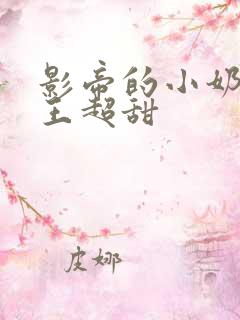 影帝的小奶
王超甜
皮娜